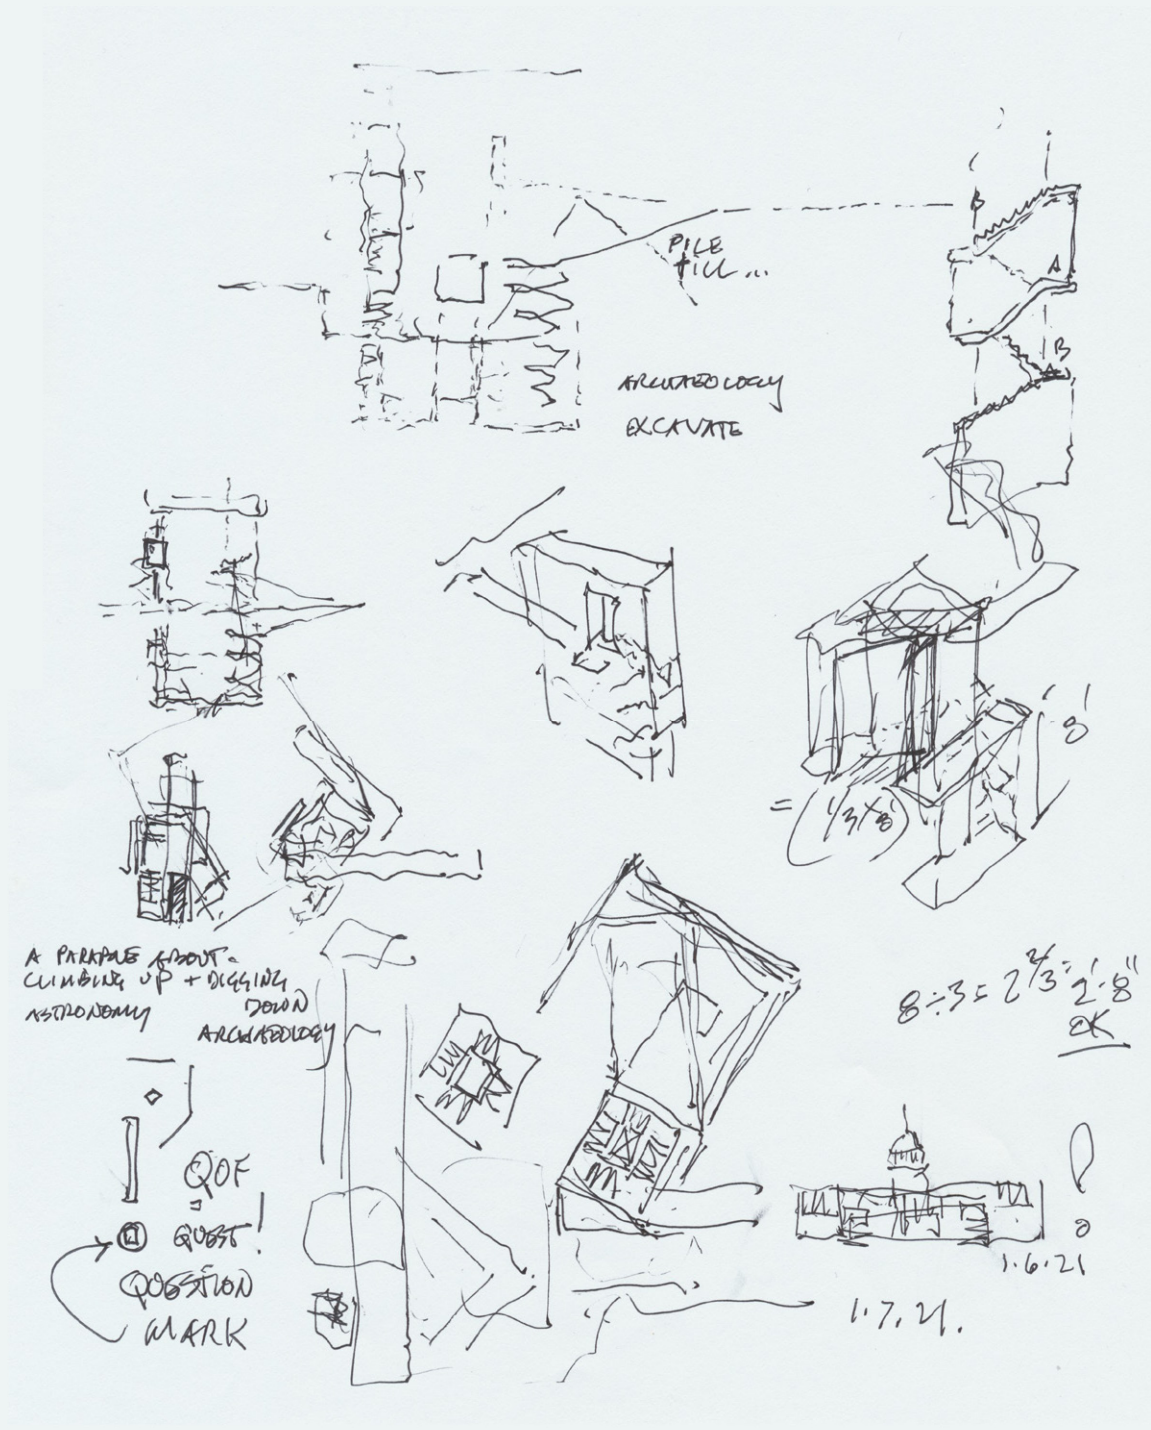 B
PILE
FILL...
A
B
A
ARCHAEOLOGY
EXCAVATE
8'
= (1/3 × 8')
A PARABLE ABOUT
CLIMBING UP + DIGGING
DOWN
ASTRONOMY
ARCHAEOLOGY
8 ÷ 3 = 2 2/3 = 2'-8"
OK
QOF
=
QUEST!
QUESTION
MARK
1.6.21
1.7.21.